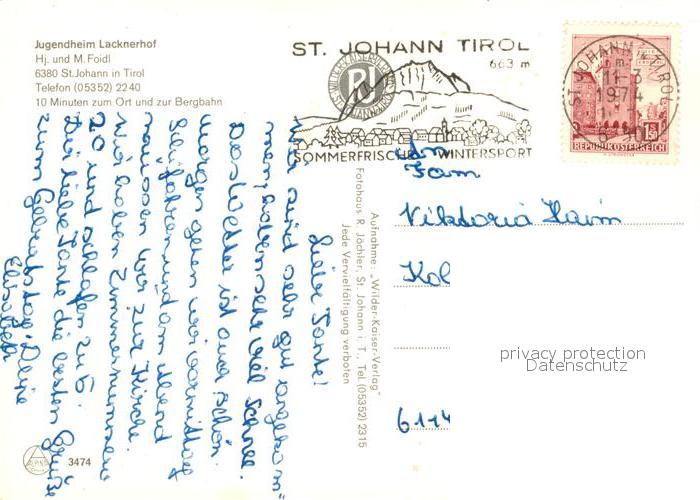 Jugendheim Lacknerhof
Hj. und M. Foidl
6380 St. Johann in Tirol
Telefon (0 53 52) 22 40
10 Minuten zum Ort und zur Bergbahn
ST. JOHANN TIROL
663 m
SOMMERFRISCHE WINTERSPORT
ST. JOHANN TIROL
11-3
1974
1.50
REPUBLIK ÖSTERREICH
An
Fam
Viktoria Haim
Kol
6114
privacy protection
Datenschutz
Aufnahme: „Wilder-Kaiser-Verlag"
Fotohaus R. Jöchler, St. Johann i. T., Tel. (05352) 2315
Jede Vervielfältigung verboten
Liebe Tante!
Wir sind sehr gut angekom"
men, haben sehr viel Schnee.
Das Wetter ist auch schön.
Morgen gehen wir vormittag
Schifahren und am Abend
müssen wir zur Kirche.
Wir haben Zimmernummer
20 und schlafen zu 6.
Dir liebe Tante die besten Grüße
zum Geburtstag. Deine
Elisabeth
3474